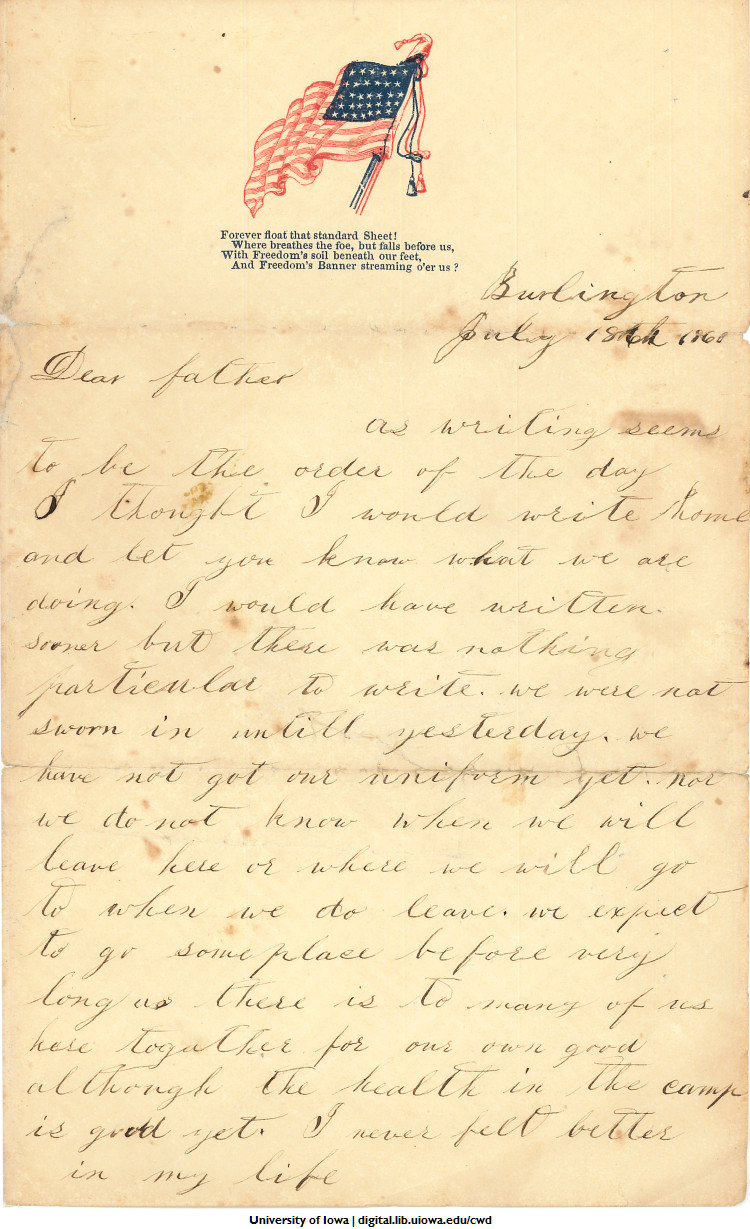 Forever float that standard Sheet!
Where breathes the foe, but falls before us,
With Freedom's soil beneath our feet,
And Freedom's Banner streaming o'er us?
Burlington
July 18th 186
Dear father
as writing seems
to be the order of the day
I thought I would write home
and let you know what we are
doing. I would have written
sooner but there was nothing
particular to write. we were not
sworn in untill yesterday. we
have not got our uniform yet. nor
we do not know when we will
leave here or where we will go
to when we do leave. we expect
to go someplace before very
long as there is to many of us
here together for our own good
although the health in the camp
is good yet. I never felt better
in my life
University of Iowa | digital.lib.uiowa.edu/cwd